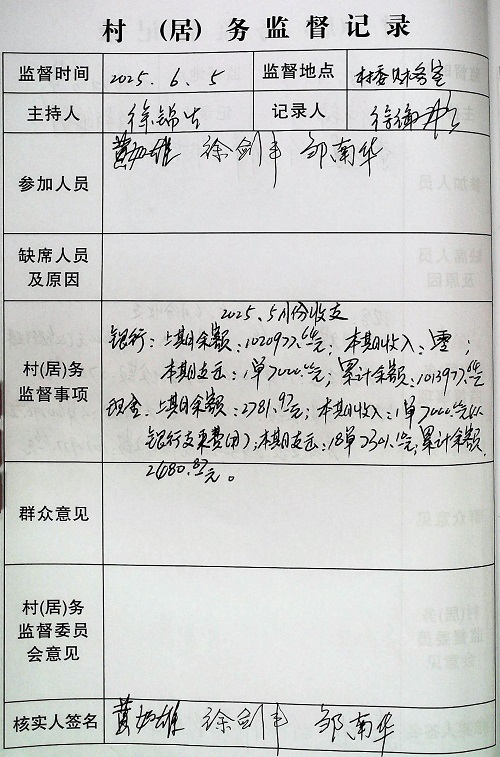 村 (居) 务 监 督 记 录
监督时间 2025.6.5 监督地点 村委财务室
主持人 徐锦 记录人 徐
参加人员 黄如雄 徐剑丰 邹南华
缺席人员
及原因
村(居)务
监督事项
2025.5月份收支
银行:上期余额:1020977.64元;本期收入:零;
本期支出:1单7000.00元;累计余额:1013977.64元
现金:上期余额:2781.97元;本期收入:1单7000.00元(从
银行支来费用);本期支出:18单7301.10元;累计余额
2480.87元。
群众意见
村(居)务
监督委员
会意见
核实人签名 黄如雄 徐剑丰 邹南华